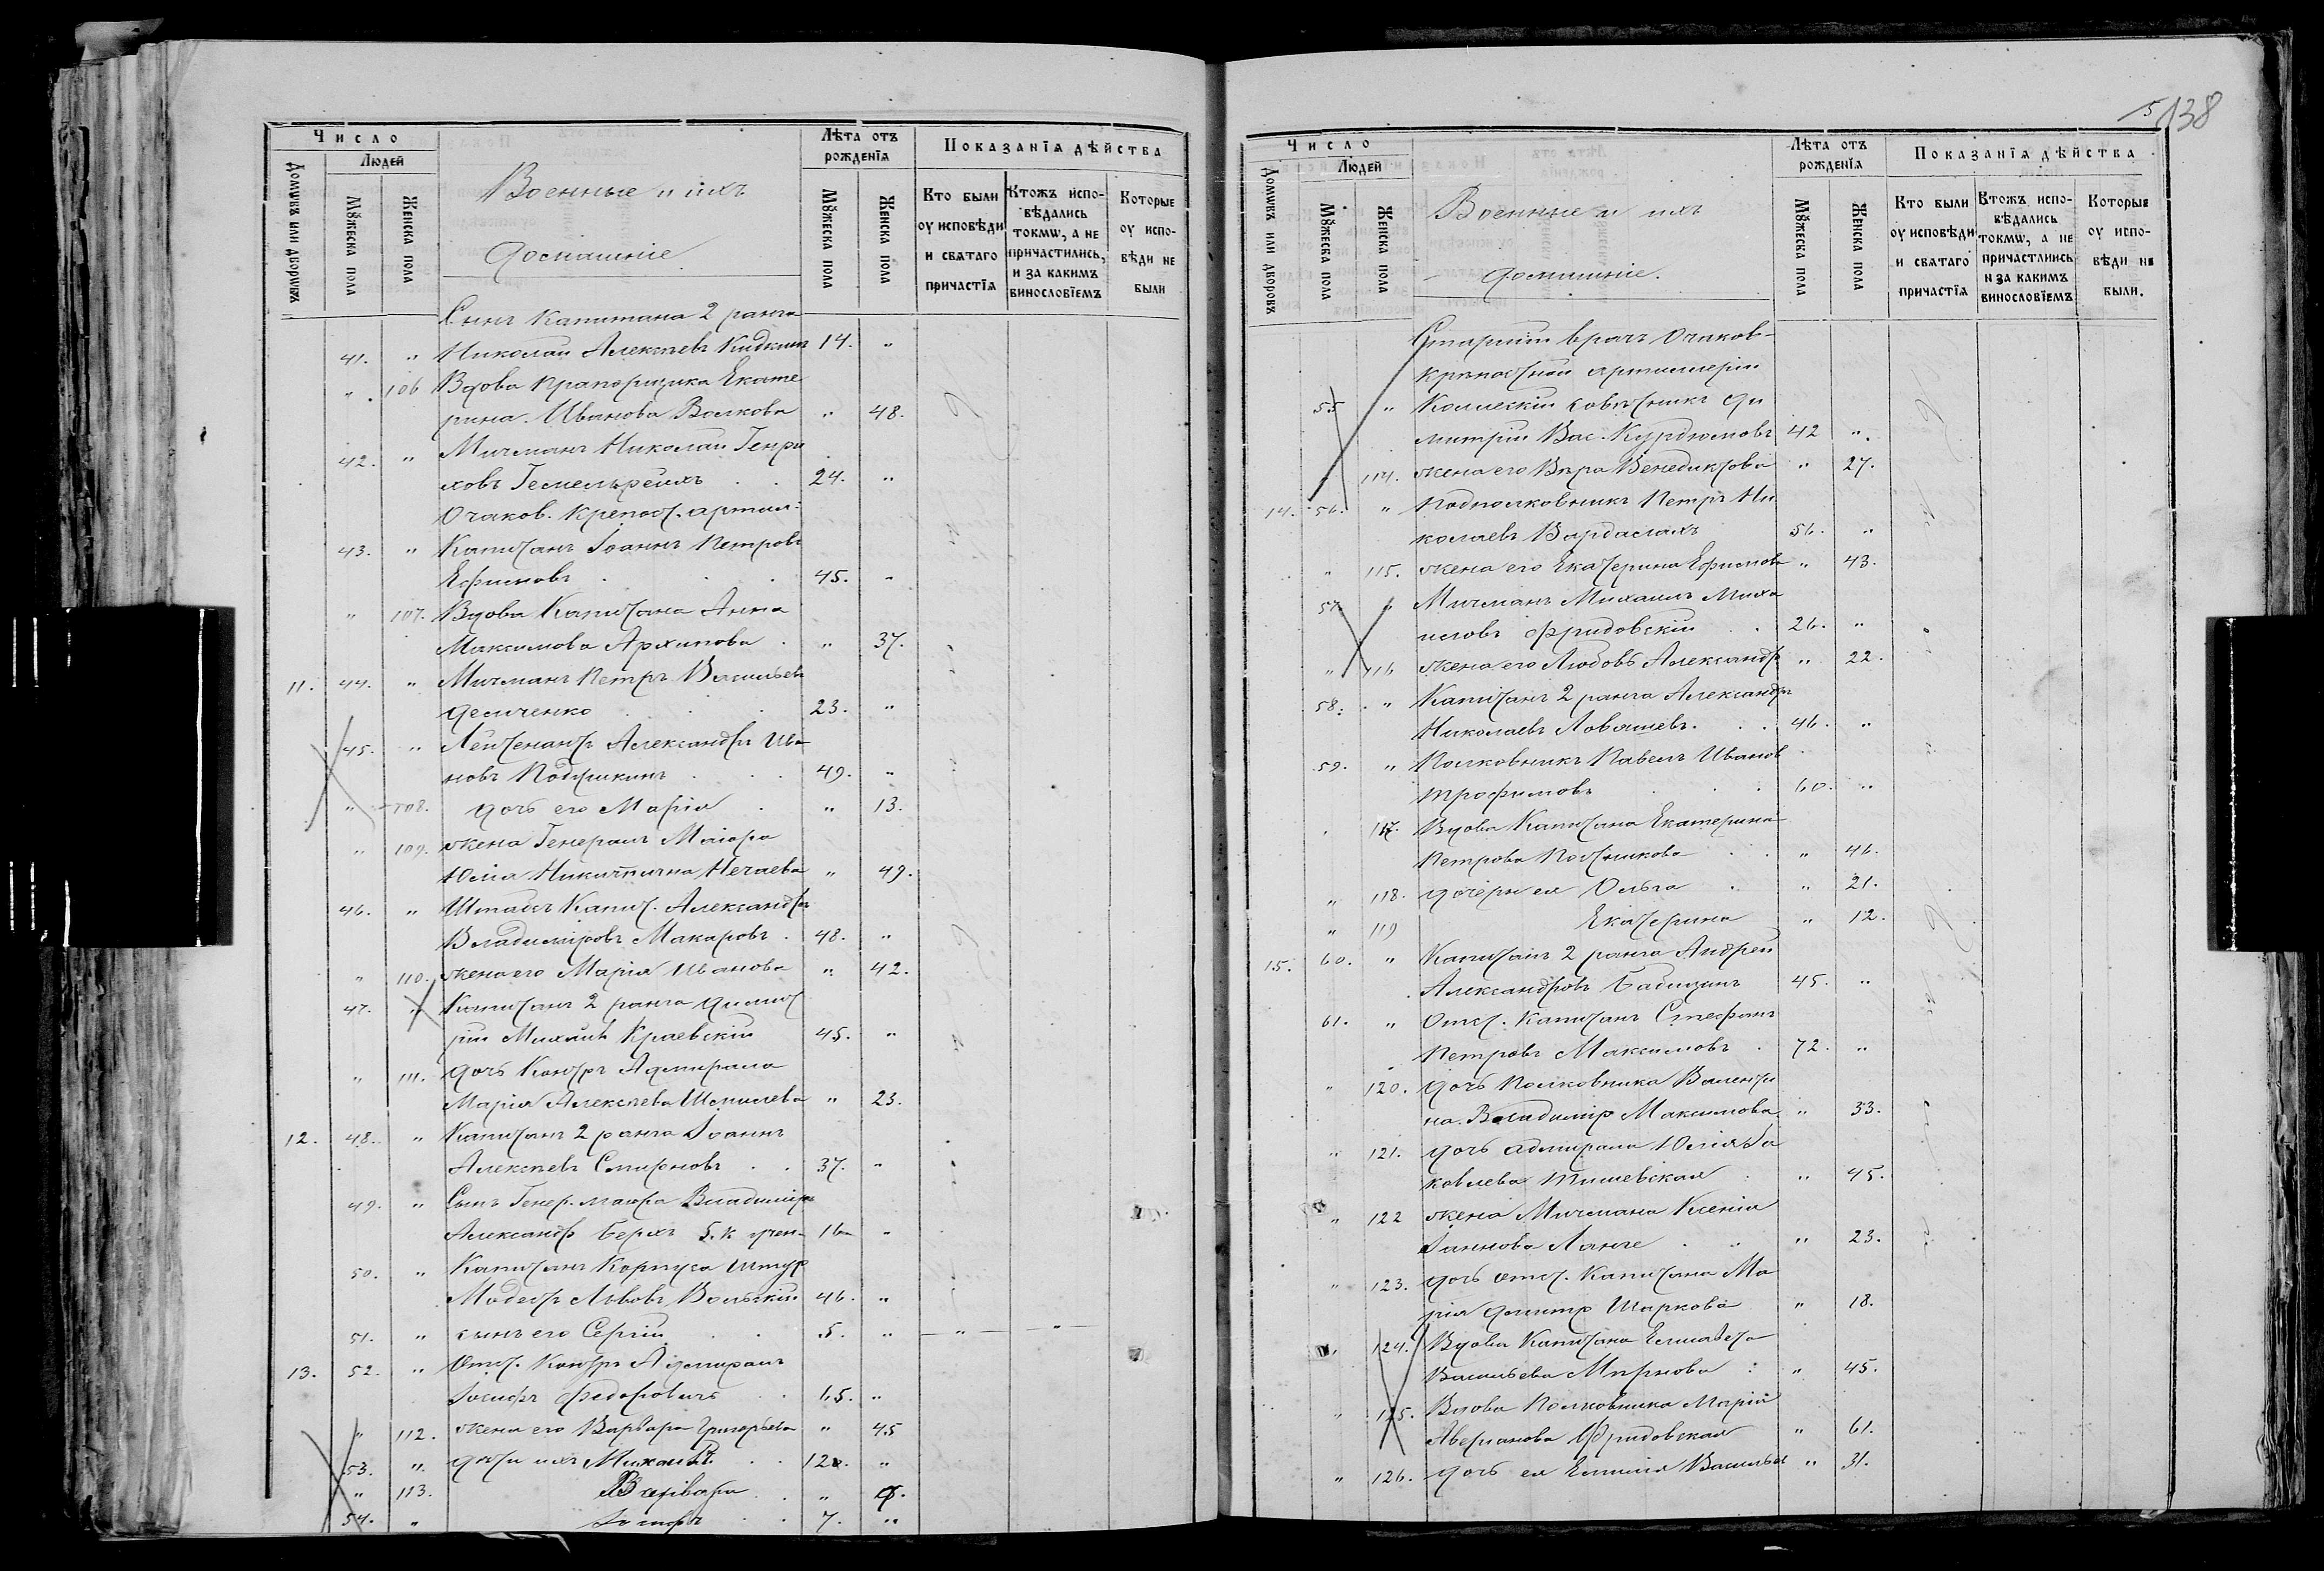 Число
Людей
Домѡвъ или дворѡвъ
Мꙋжеска пола
Женска пола
Военные и ихъ
домашніе
Лѣта отъ рожденїя
Мꙋжеска пола
Женска пола
Показанїя дѣйства
Кто были оу исповѣди и святаго причастїя
Ктожъ исповѣдались токмѡ, а не причастились, и за какимъ винословїемъ
Которые оу исповѣди не были
Сынъ Капитана 2 ранга
41. " Николай Алексѣевъ 14. "
" 106 Вдова прапорщика Екате
рина Иванова Волкова " 48.
42. " Мичманъ Николай Генри
ховъ 24. "
Очаков. крепост. артил.
43. " Капитанъ Іоаннъ Петровъ
Ефимовъ 45. "
" 107. Вдова Капитана Анна
Максимова Архипова " 37.
11. 44. " Мичманъ Петръ Васильевъ
Демченко 23. "
45. " Лейтенантъ Александръ Ива
новъ 49. "
" 108. дочь его Марія " 13.
" 109. жена Генералъ Маіора
Юлія Никитична Нечаева " 49.
46. " Штабсъ Капит. Александръ
Владиміровъ Макаровъ 48. "
" 110. жена его Марія Иванова " 42.
47. " Капитанъ 2 ранга Димит
рій Михаил. Краевскій 45. "
" 111. дочь Контръ Адмирала
Марія Алексѣева Шмилева " 23.
12. 48. " Капитанъ 2 ранга Іоаннъ
Алексѣевъ Смирновъ 37. "
49. " Сынъ Генер. маіора Владиміръ
Александр. Берхъ 16 "
50. " Капитанъ Корпуса штур
Модестъ Львовъ 46. "
51. " сынъ его Сергій 5. " " "
13. 52. " Отст. Контръ Адмиралъ
Іосифъ Федоровичъ 65. "
" 112. жена его Варвара Григорьева " 45
53. " дѣти ихъ Михаилъ 12. "
" 113. Варвара "
54. " Іосифъ 7. "
5 138
Число
Людей
Домѡвъ или дворовъ
Мꙋжеска пола
Женска пола
Военные и ихъ
домашніе.
Лѣта отъ рожденїя
Мꙋжеска пола
Женска пола
Показанїя дѣйства
Кто были оу исповѣди и святаго причастїя
Ктожъ исповѣдались токмѡ, а не причастились и за какимъ винословїемъ
Которые оу исповѣди не были.
Старшій врачъ Очаков-
крѣпостной артиллеріи
55 " Колежскій совѣтникъ Ди
митрій Вас. Курдюмовъ 42 "
" 114. жена его Вѣра Венедиктова " 27.
14. 56. " Подполковникъ Петръ Ни
колаевъ Вардаслахъ 56. "
" 115. жена его Екатерина Ефимова " 43.
57. " Мичманъ Михаилъ Миха
иловъ Фридовскій 26. "
" 116 жена его Любовь Александр " 22.
58. " Капитанъ 2 ранга Александръ
Николаевъ Ловяшевъ. 46. "
59. " Полковникъ Павелъ Иванов
Трофимовъ 60. "
117. Вдова Капитана Екатерина
Петрова Постникова " 46.
" 118. дочери ея Ольга " 21.
" 119 Екатерина " 12.
15. 60. " Капитанъ 2 ранга Андрей
Александровъ Бадицинъ 45. "
61. " Отст. Капитанъ Стефанъ
Петровъ Максимовъ 72. "
" 120. дочь Полковника Валенти
на Владимір Максимова " 33.
" 121. дочь адмирала Юлія Іа
ковлева Тишевская " 45.
" 122 жена Мичмана Ксенія
Іаннова Ланге " 23.
" 123. дочь отст. Капитана Ма
рія Димитр Шаркова " 18.
" 124. Вдова Капитана Елисавета
Васильева Миронова " 45.
" 125. Вдова Полковника Марія
Аверіанова Фридовская " 61.
" 126. дочь ея Емилія Васильев " 31.